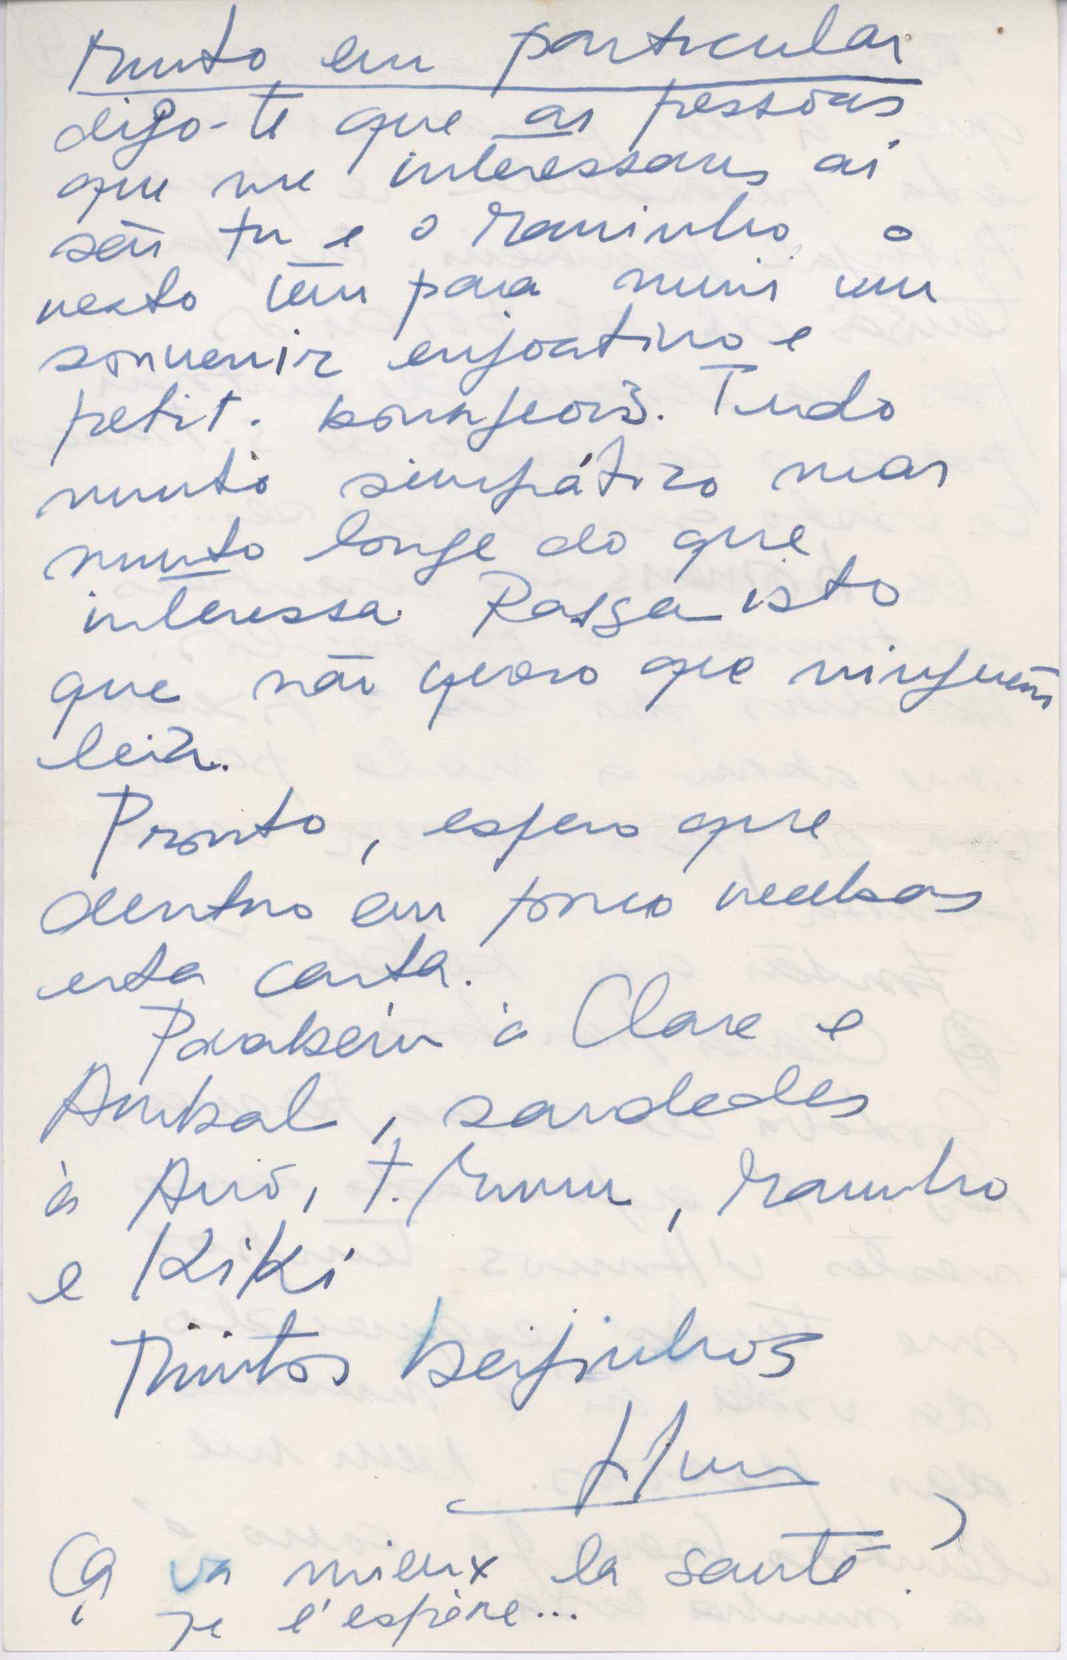 Muito em particular
digo-te que as pessoas
que me interessam aí
são tu e o Raminho o
resto têm para mim um
souvenir enjoativo e
petit. bourgeois. Tudo
muito simpático mas
muito longe do que
interessa. Rasga isto
que não quero que ninguém
leia.
Pronto, espero que
dentro em pouco recebas
esta carta.
Parabéns à Clare e
Anibal, saudades
à Avó, T. , Raminho
e Kiki
Muitos beijinhos
Ça va mieux la santé?
Je l'espère...